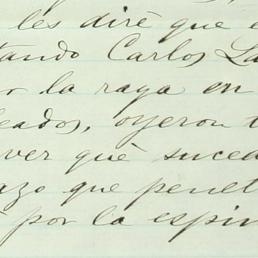 les diré que e
tando Carlos La
o la raya en
eados, oyeron t
ver qué suced
azo que penet
por la espin